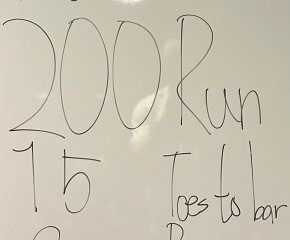 200 Run
15 Toes to bar